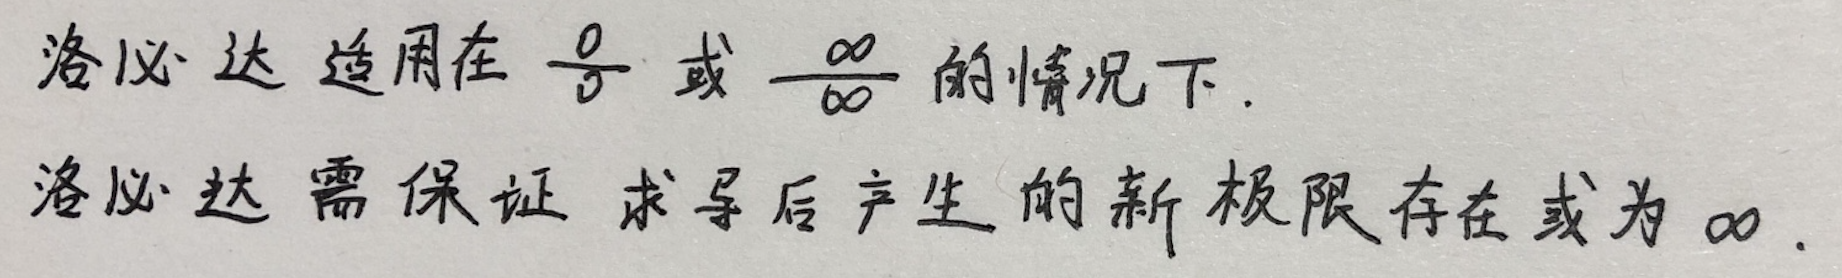 洛必达 适用在 0/0 或 ∞/∞ 的情况下.
洛必达 需保证 求导后产生的新极限存在或为 ∞.